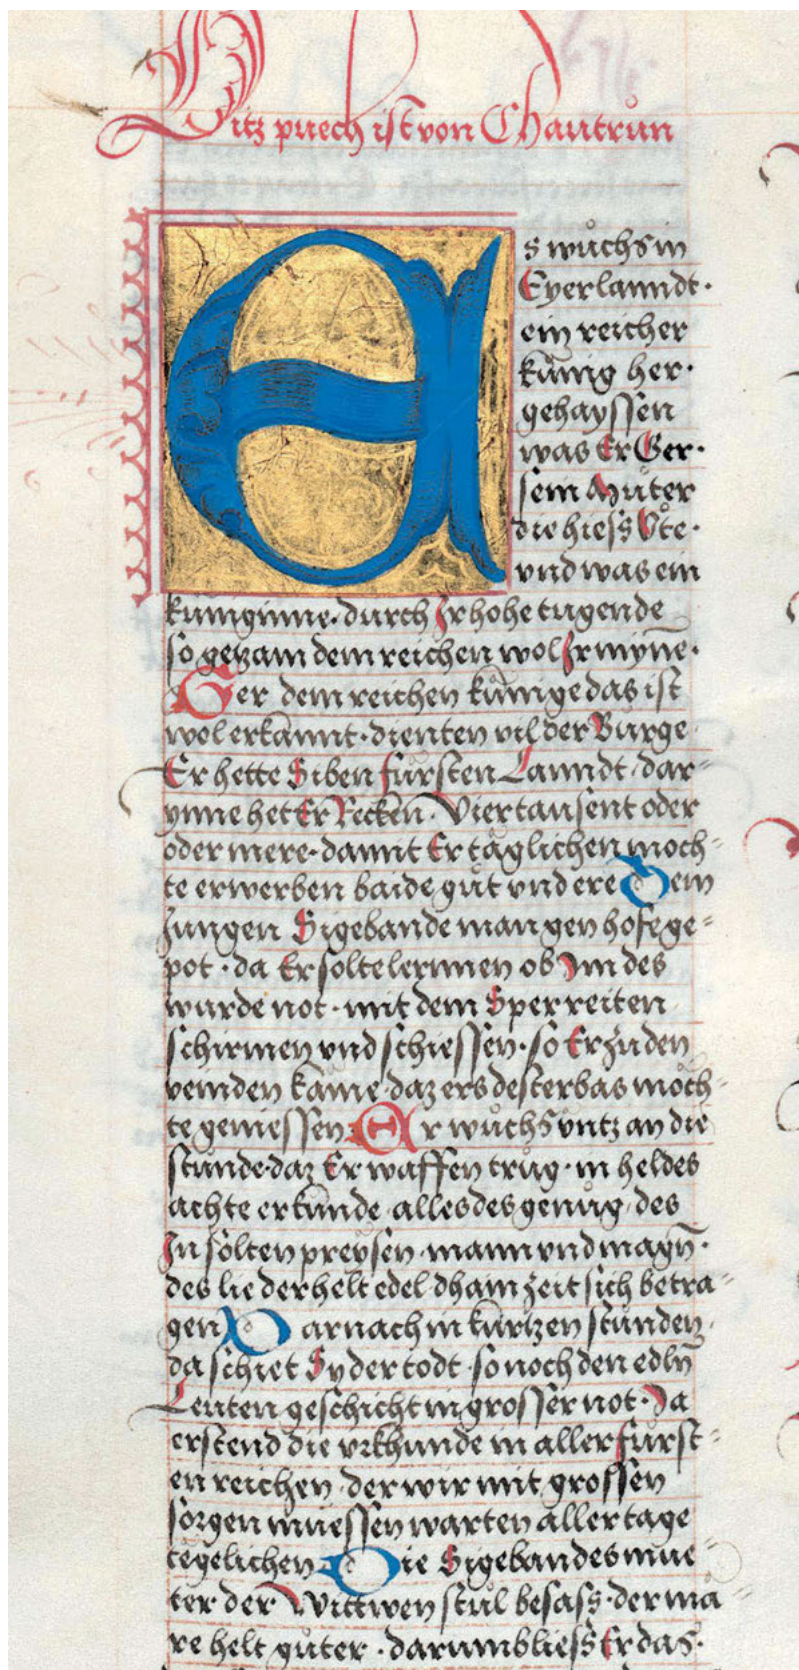 Ditz puech ist von Chautrůn
Es wůchs in
Eyerlanndt·
ein reicher
kůnig her·
gehayssen
was Er Ger·
sein Můter
die hiess Ůte·
vnd was ein
kuniginne· durch Jr hohe tugende
so getzam dem reichen wol Jr mÿne·
Ger dem reichen kůnige das ist
wol erkannt· dienten vil der Burge
Er hette Siben fürsten Lanndt· dar=
ynne het Er Recken· Viertausent oder
oder mere· damit Er täglichen moch=
te erwerben baide gůt vnd ere Dem
Jungen Sigebande man gen hofe ge=
pot· da Er solte lernnen ob Jm des
wurde not· mit dem Sper reiten
schirmen vnd schiessen· so Er zu den
veinden käme· daz ers dester bas möch=
te geniessen Er wůchs vntz an die
stunde· daz Er waffen trůg· in heldes
achte erkunde· alles des genůg· des
Jn solten preysen· mann vnd magn̄·
des lie der helt edel dhain zeit sich betra=
gen Darnach in kurtzen stunden·
da schiet Sy der todt· so noch den edln̄
Leuten geschicht in grosser not· Ja
erstend die vrkhunde in aller fürst=
en reichen· der wir mit grossen
sorgen muessen warten aller tage
tegelichen Die Sigebandes mue=
ter der Wittwen stůl besass· der mä=
re helt gůter· darumb liess Er das·